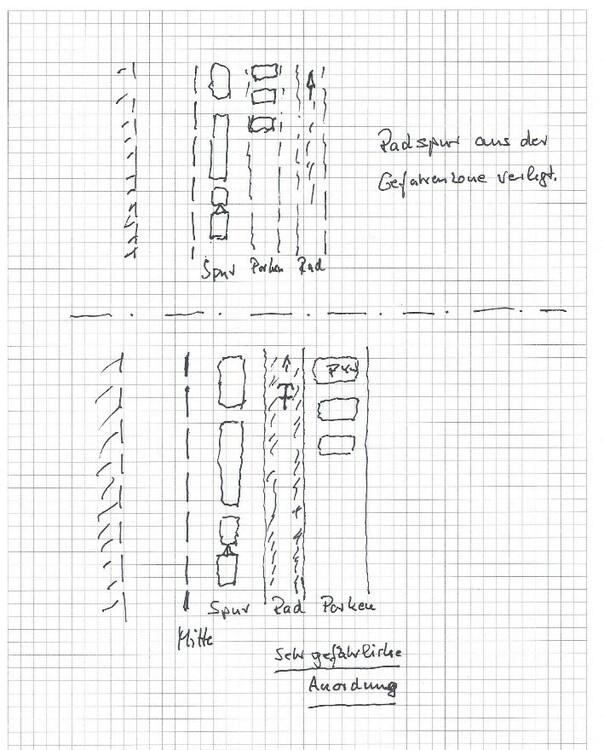 Radspur aus der
Gefahrenzone verlegt.
Spur Parken Rad
PKW
Spur Rad Parken
Mitte
Sehr gefährliche
Anordnung